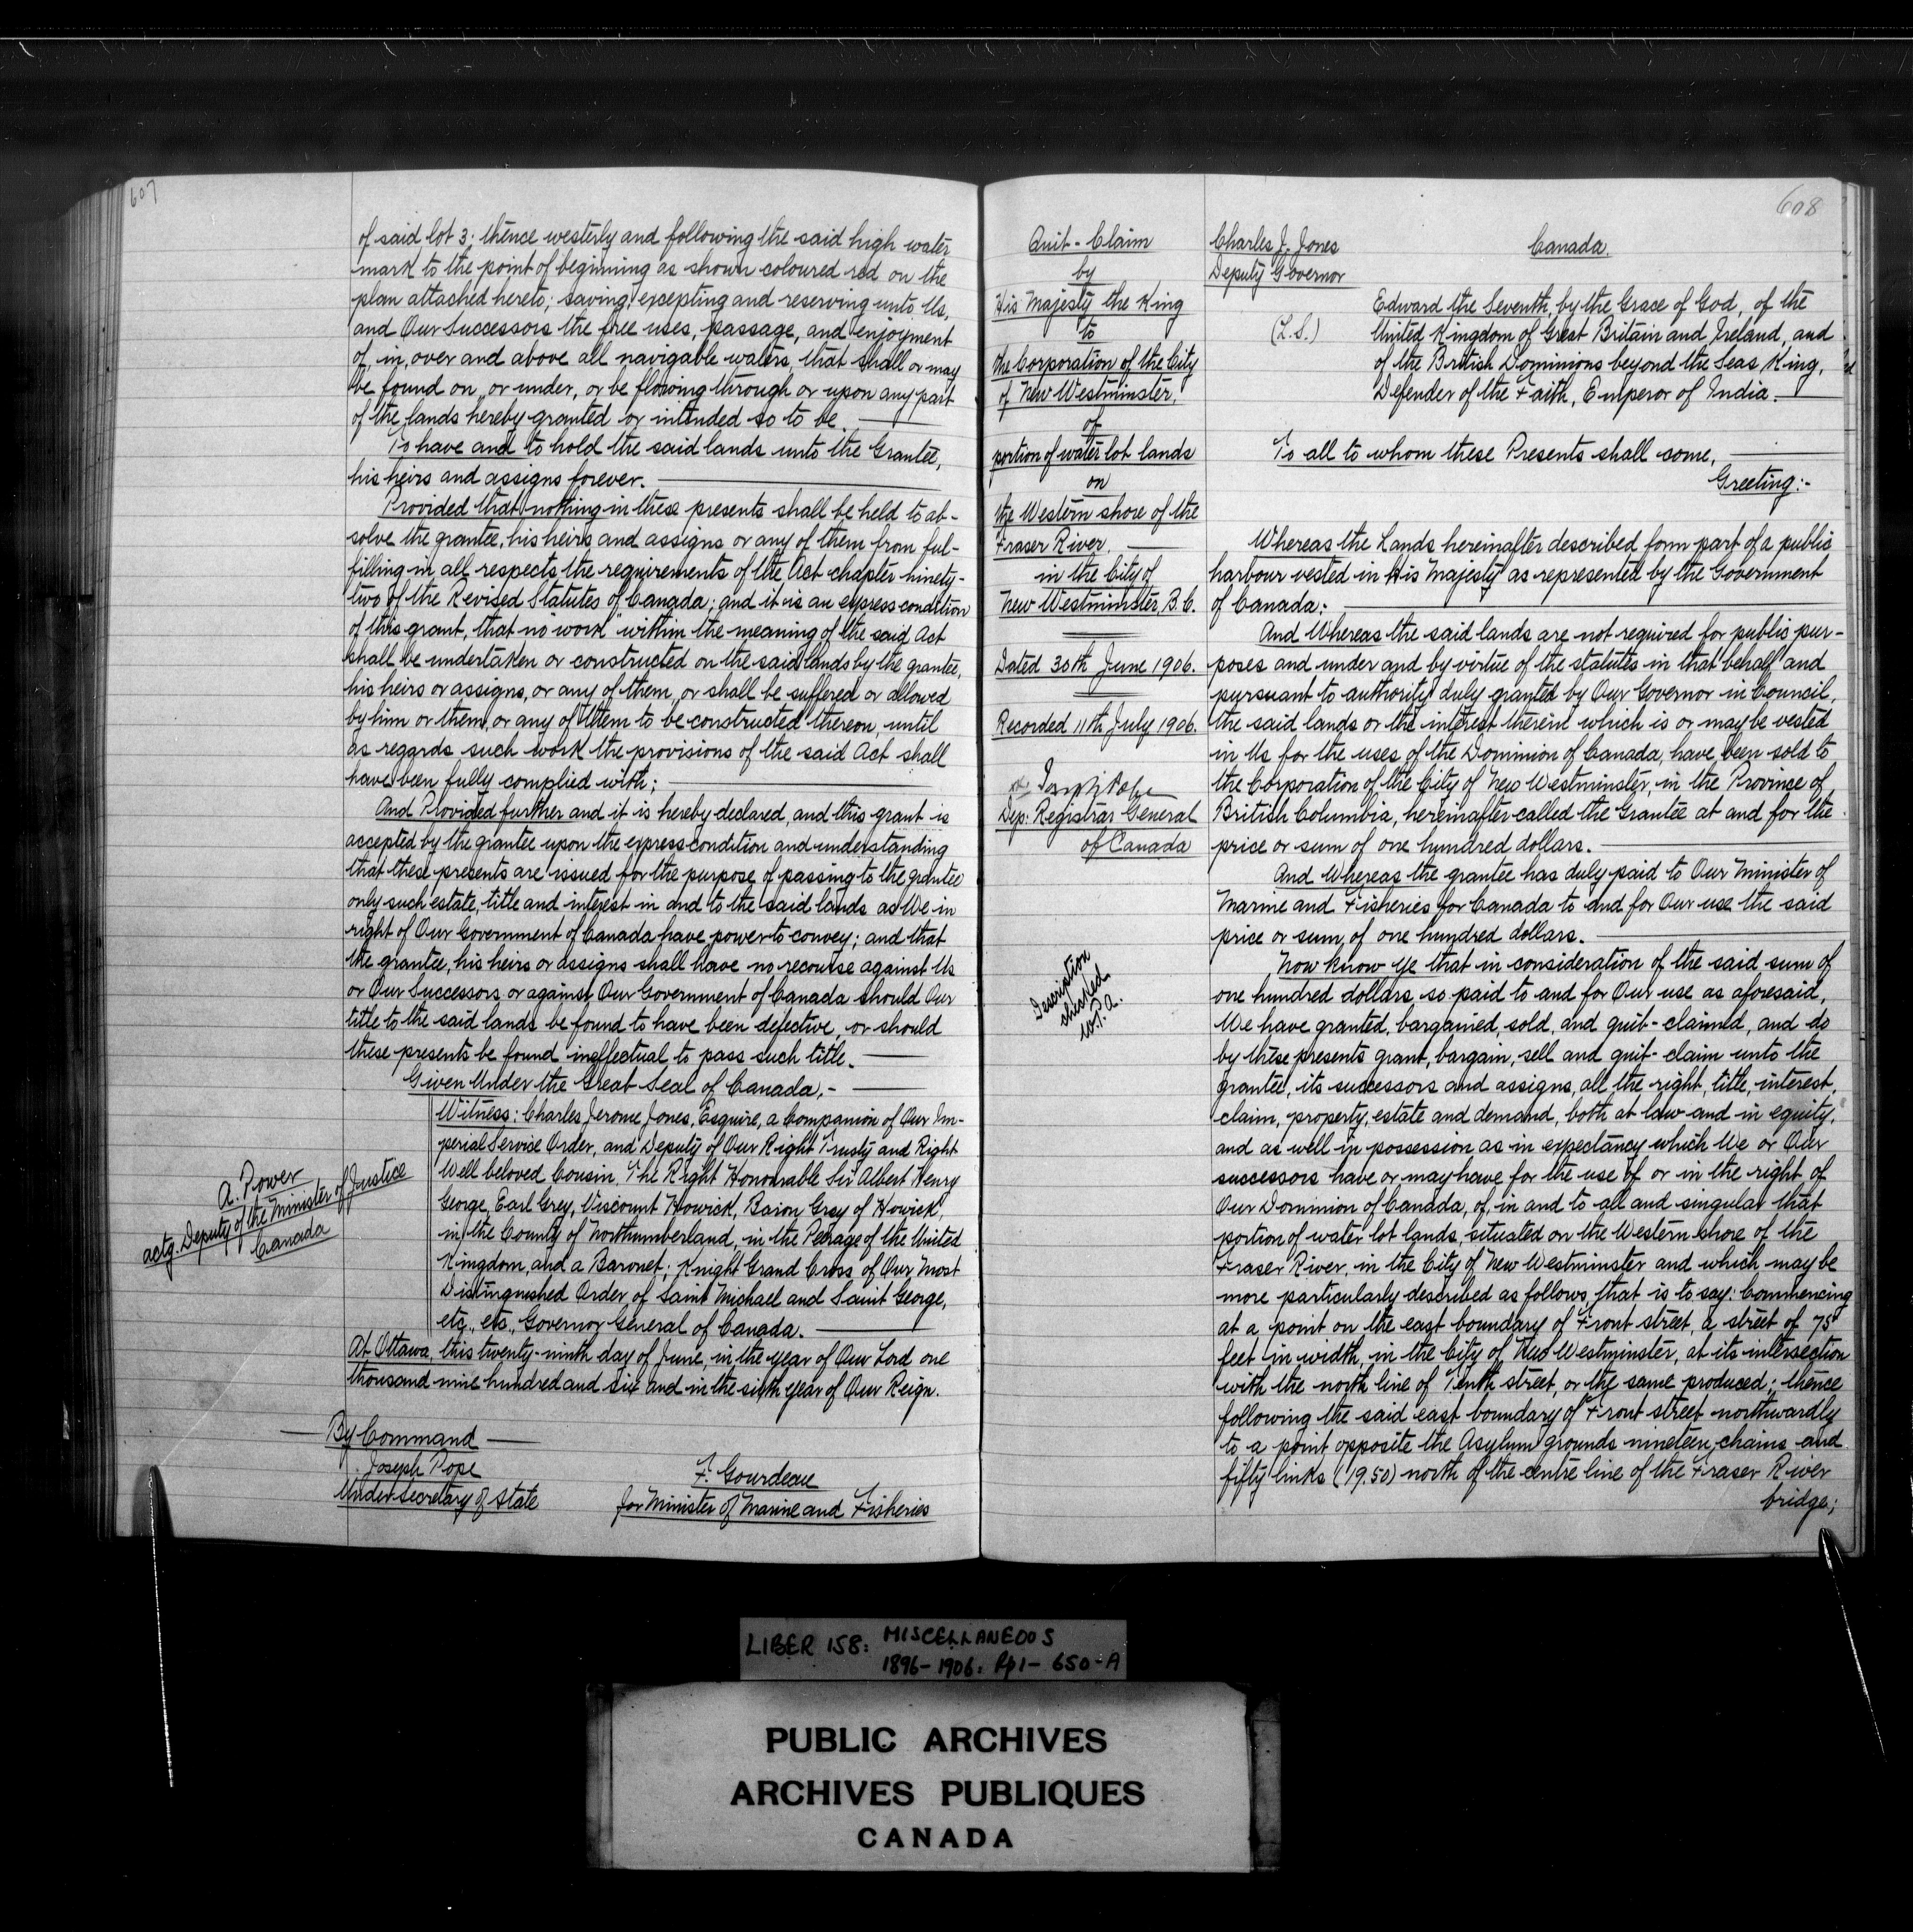 607
of said lot 3; thence westerly and following the said high water
mark to the point of beginning as shown coloured red on the
plan attached hereto; saving, excepting and reserving unto Us,
and Our Successors the free uses, passage, and enjoyment
of, in, over and above all navigable waters, that shall or may
be found on, or under, or be flowing through or upon any part
of the lands hereby granted or intended so to be.
To have and to hold the said lands unto the Grantee,
his heirs and assigns forever.
Provided that nothing in these presents shall be held to ab-
solve the grantee, his heirs and assigns or any of them from ful-
filling in all respects the requirements of the Act chapter ninety-
two of the Revised Statutes of Canada; and it is an express condition
of this grant, that no "work" within the meaning of the said Act
shall be undertaken or constructed on the said lands by the grantee,
his heirs or assigns, or any of them, or shall be suffered or allowed
by him or them, or any of them to be constructed thereon, until
as regards such work the provisions of the said Act shall
have been fully complied with;
And Provided further and it is hereby declared, and this grant is
accepted by the grantee upon the express condition and understanding
that these presents are issued for the purpose of passing to the grantee
only such estate, title and interest in and to the said lands as We in
right of Our Government of Canada have power to convey; and that
the grantee, his heirs or assigns shall have no recourse against Us
or Our Successors or against Our Government of Canada should Our
title to the said lands be found to have been defective, or should
these presents be found ineffectual to pass such title.
Given Under the Great Seal of Canada,-
Witness: Charles Jerome Jones, Esquire, a Companion of Our Im-
perial Service Order, and Deputy of Our Right Trusty and Right
Well beloved Cousin, The Right Honourable Sir Albert Henry
George, Earl Grey, Viscount Howick, Baron Grey of Howick,
in the County of Northumberland, in the Peerage of the United
Kingdom, and a Baronet; Knight Grand Cross of Our Most
Distinguished Order of Saint Michael and Saint George,
etc., etc., Governor General of Canada.
A. Power
actg. Deputy of the Minister of Justice
Canada
At Ottawa, this twenty-ninth day of June, in the year of Our Lord one
thousand nine hundred and six and in the sixth year of Our Reign.
By Command
Joseph Pope
Under Secretary of State
F. Gourdeau
for Minister of Marine and Fisheries
608
Quit-Claim
by
His Majesty the King
to
the Corporation of the City
of New Westminster,
of
portion of water lot lands
on
the Western shore of the
Fraser River
in the City of
New Westminster, B.C.
Dated 30th June 1906.
Recorded 11th July 1906.
Joseph Pope
Dep: Registrar General
of Canada
Description
checked
W.P.A.
Charles J. Jones
Deputy Governor
Canada.
(L.S.)
Edward the Seventh, by the Grace of God, of the
United Kingdom of Great Britain and Ireland, and
of the British Dominions beyond the Seas, King,
Defender of the Faith, Emperor of India.
To all to whom these Presents shall come,
Greeting:-
Whereas the Lands hereinafter described form part of a public
harbour vested in His Majesty as represented by the Government
of Canada:
And Whereas the said lands are not required for public pur-
poses and under and by virtue of the statutes in that behalf and
pursuant to authority duly granted by Our Governor in Council,
the said lands or the interest therein which is or may be vested
in Us for the uses of the Dominion of Canada, have been sold to
the Corporation of the City of New Westminster, in the Province of
British Columbia, hereinafter called the Grantee at and for the
price or sum of one hundred dollars.
And Whereas the grantee has duly paid to Our Minister of
Marine and Fisheries for Canada to and for Our use the said
price or sum of one hundred dollars.
Now Know Ye that in consideration of the said sum of
one hundred dollars so paid to and for Our use as aforesaid,
We have granted, bargained, sold, and quit-claimed, and do
by these presents grant, bargain, sell and quit-claim unto the
grantee, its successors and assigns, all the right, title, interest,
claim, property, estate and demand, both at law and in equity,
and as well in possession as in expectancy which We or Our
successors have or may have for the use of or in the right of
Our Dominion of Canada, of, in and to all and singular that
portion of water lot lands, situated on the Western shore of the
Fraser River, in the City of New Westminster and which may be
more particularly described as follows, that is to say: Commencing
at a point on the east boundary of Front street, a street of 75
feet in width, in the City of New Westminster, at its intersection
with the north line of Tenth street, or the same produced; thence
following the said east boundary of Front street northwardly
to a point opposite the Asylum grounds nineteen chains and
fifty links (19.50) north of the centre line of the Fraser River
bridge;
LIBER 158: MISCELLANEOUS
1896-1906: Pp 1-650-A
PUBLIC ARCHIVES
ARCHIVES PUBLIQUES
CANADA